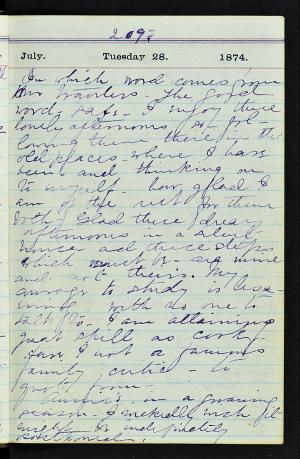 209th
July. Tuesday 28. 1874.
In which word comes from
our travelers - The good
word, safe. I enjoy these
lonely afternoons, in fol-
lowing them there in the
old places where I have
been and thinking on
to myself how glad I
am of the rest for them
both. Glad these dreary
afternoons in a silent
house and these steps
which must be are mine
and not theirs. My
courage to study is less-
ening - with no one to
talk to. I am attaining
great skill as cook.
Am I not a famous
family critic - to
quote from -
in a groaning
season. I wickedly wish it
might be indefinitely
postponed.